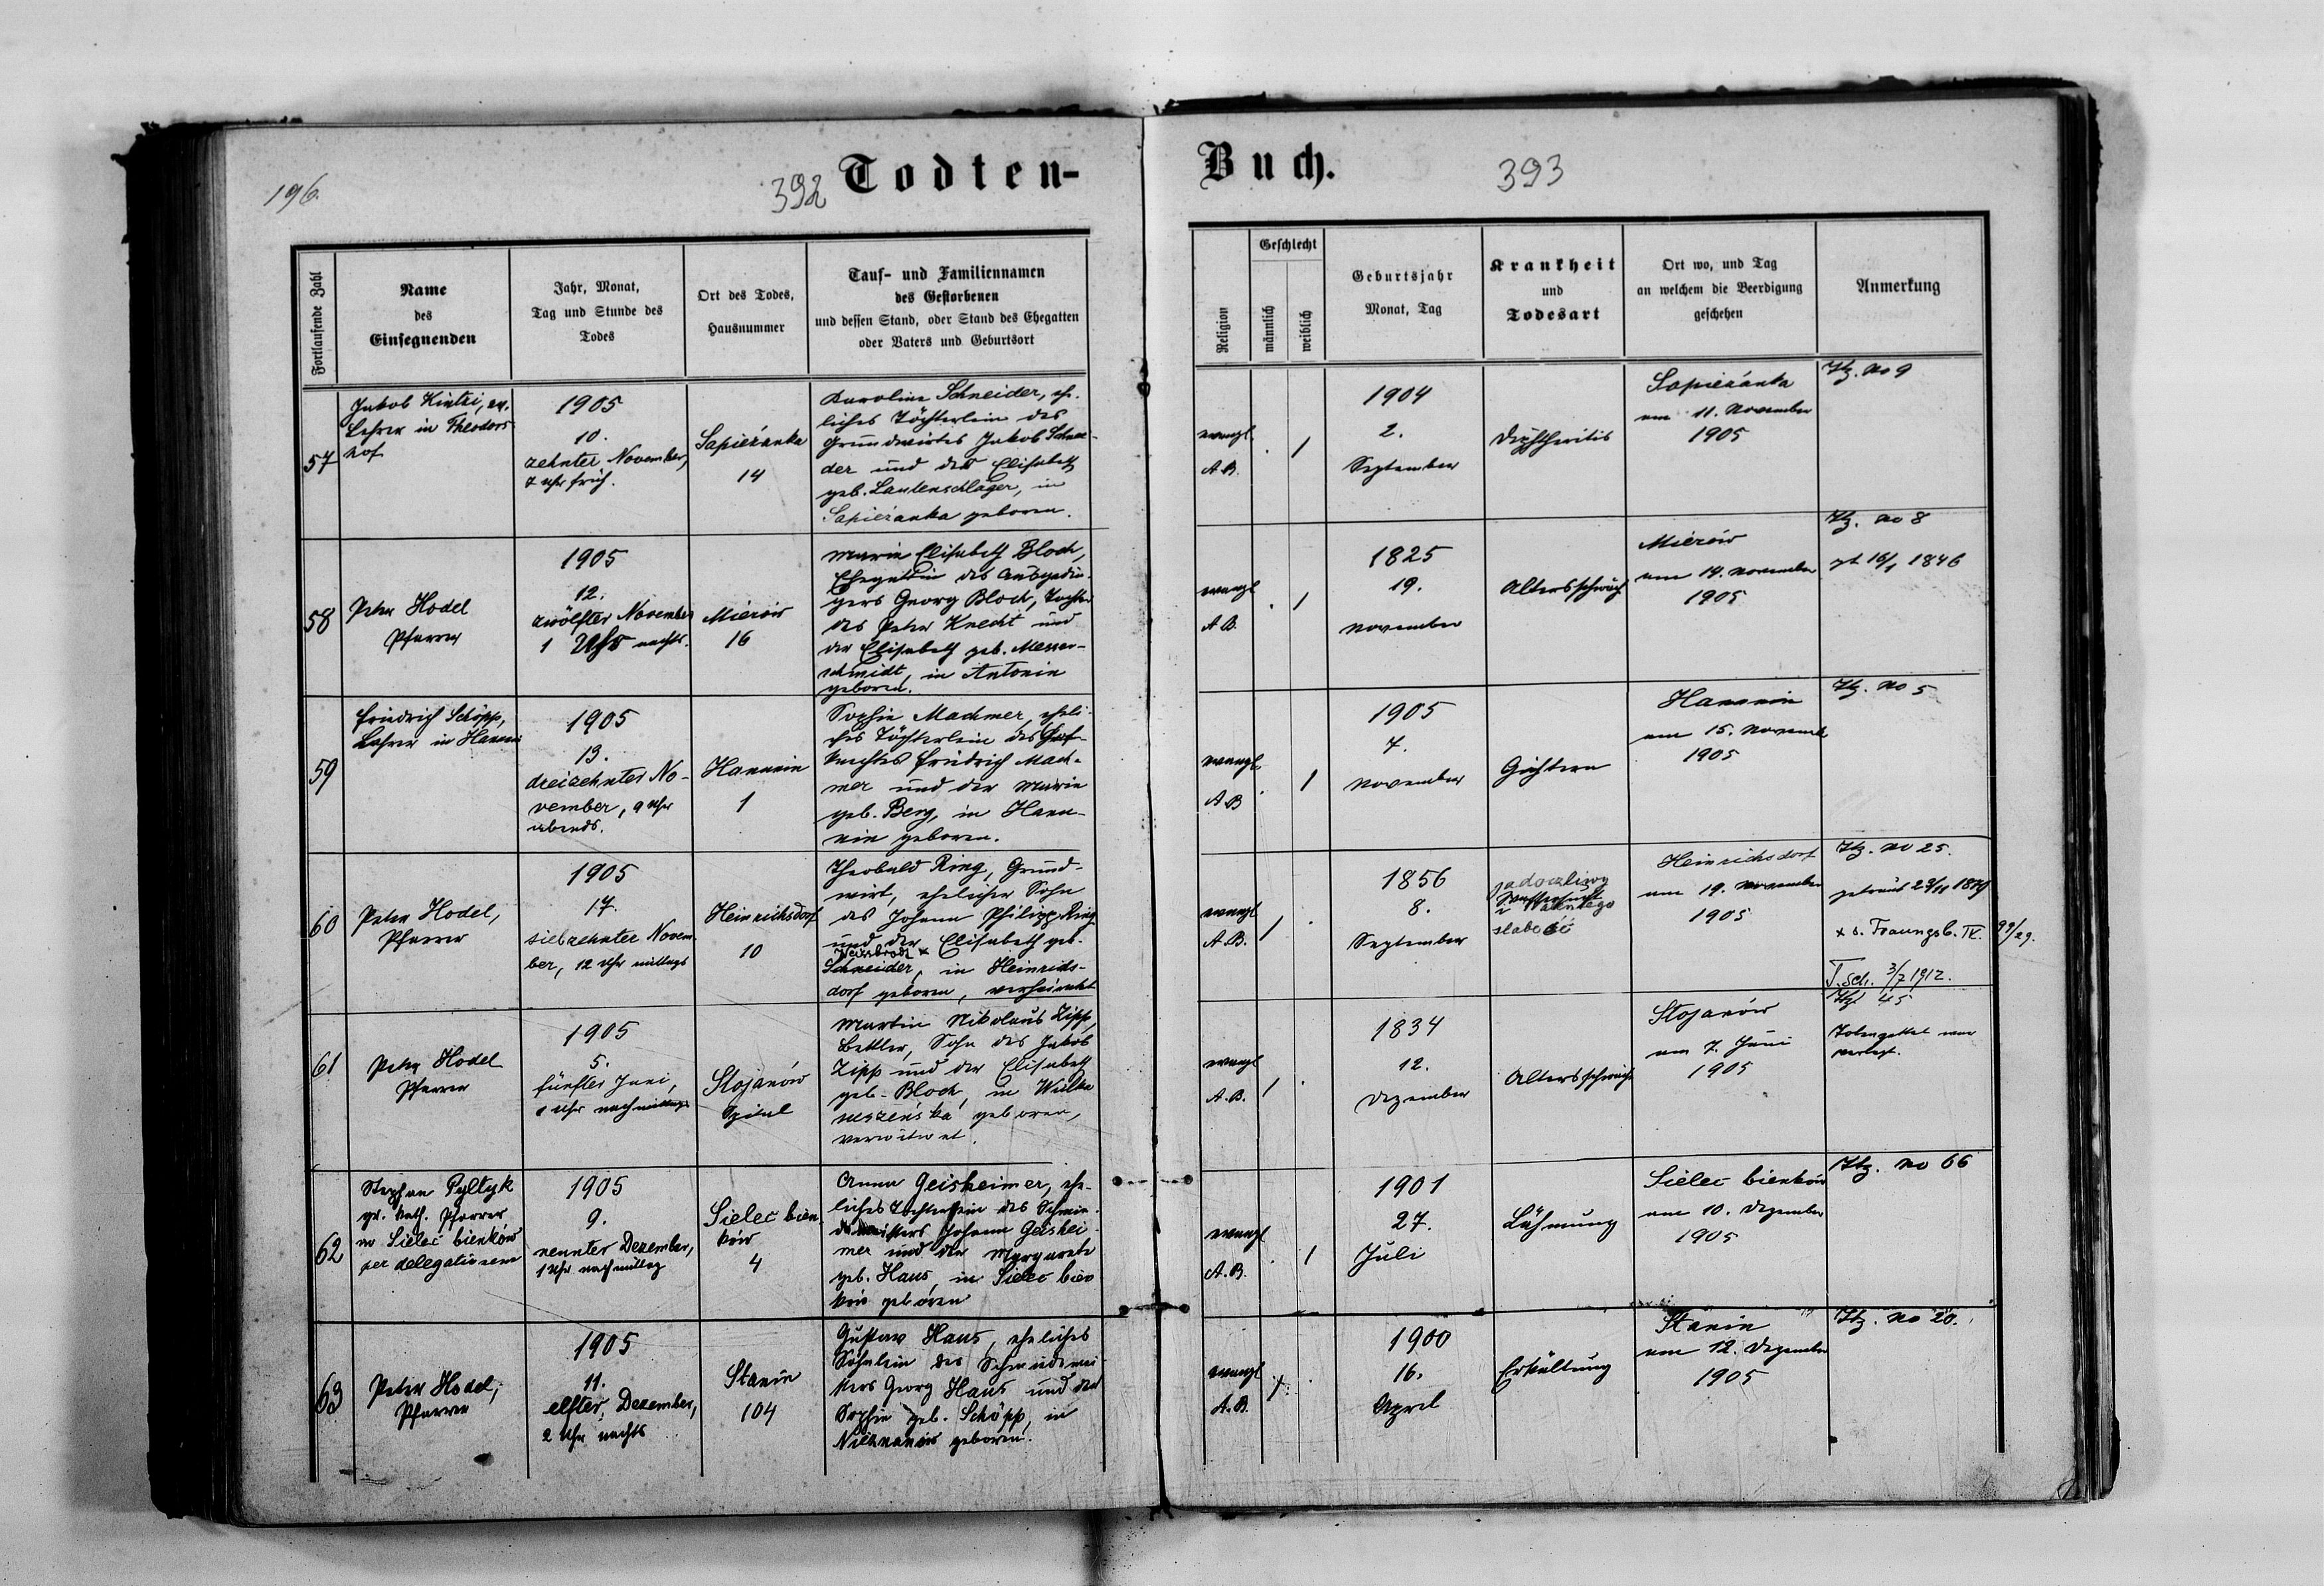 196.
392
Todten-
Buch.
393
Fortlaufende Zahl
Name
des
Einsegnenden
Jahr, Monat,
Tag und Stunde des
Todes
Ort des Todes,
Hausnummer
Tauf- und Familiennamen
des Gestorbenen
und dessen Stand, oder Stand des Ehegatten
oder Vaters und Geburtsort
Religion
Geschlecht
männlich
weiblich
Geburtsjahr
Monat, Tag
Krankheit
und
Todesart
Ort wo, und Tag
an welchem die Beerdigung
geschehen
Anmerkung
57
Jakob Kintzi, ev.
Lehrer in Theodors
hof
1905
10.
zehnter November,
7 Uhr früh.
Sapieżanka
14
Karoline Schneider, ehe-
liches Töchterlein des
Grundwirtes Jakob Schnei-
der und der Elisabeth
geb. Lautenschläger, in
Sapieżanka geboren.
evangl.
A.B.
. 1
1904
2.
September
Diphtheritis
Sapieżanka
am 11. November
1905
Itz. No 9
58
Peter Hodel
Pfarrer
1905
12.
zwölfter November
1 Uhr nachts.
Mierów
16
Marie Elisabeth Bloch,
Ehegattin des Ausgedin-
gers Georg Bloch, Tochter
des Peter Knecht und
der Elisabeth geb. Messer-
schmidt, in Antonin
geboren.
evangl
A.B.
. 1
1825
19.
November
Altersschwäche
Mierów
am 14. November
1905
Itz. No 8
gt 16/1 1846
59
Friedrich Schöpp,
Lehrer in Hanunin
1905
13.
dreizehnter No-
vember, 9 Uhr
abends.
Hanunin
1
Sophie Machmer, eheli-
ches Töchterlein des Hof-
knechtes Friedrich Mach-
mer und der Marie
geb. Berg, in Hanu-
nin geboren.
evangl.
A.B
. 1
1905
7.
November
Gichtern
Hanunin
am 15. November
1905
Itz. No 5
60
Peter Hodel,
Pfarrer
1905
17.
siebzehnter Novem-
ber, 12 Uhr mittags
Heinrichsdorf
10
Theobald Ring, Grund-
wirt, ehelicher Sohn
des Johann Philipp Ring
und der Elisabeth geb.
Weisbrodt x
Schneider, in Heinrichs-
dorf geboren, verheiratet
evangl
A.B.
1 .
1856
8.
September
Wassersucht
i
Heinrichsdorf
am 19. November
1905
Itz. No 25.
getraut 29/11 1879
x s. Trauungsb. IV. 99/29.
T. Sch. 3/7 1912.
61
Peter Hodel
Pfarrer
1905
5.
fünfter Juni,
1 Uhr nachmittags
Stojanów
Spital
Martin Nikolaus Zipp,
Bettler, Sohn des Jakob
Zipp und der Elisabeth
geb. Bloch, in Wulka
suszeńska geboren,
verwitwet.
evangl
A.B.
1 .
1834
12.
Dezember
Altersschwäche
Stojanów
am 7. Juni
1905
Itz. 45
Totenzettel war
verlegt.
62
Stephan Pyltyk
gr. kath. Pfarrer
in Sielec bieńków
per delegationem
1905
9.
neunter Dezember,
1 Uhr nachmittag
Sielec bień-
ków
4
Anna Geisheimer, ehe-
liches Töchterlein des Schmie-
demeisters Johann Geishei-
mer und der Margarete
geb. Haus, in Sielec bień
ków geboren
evangl
A.B.
. 1
1901
27.
Juli
Lähmung
Sielec bieńków
am 10. Dezember
1905
Itz. No 66
63
Peter Hodel,
Pfarrer
1905
11.
elfter Dezember,
2 Uhr nachts
Stanin
104
Gustav Haus, eheliches
Söhnlein des Schmiedemei-
sters Georg Haus und der
Sophie geb. Schöpp, in
geboren.
evangl
A.B.
1 .
1900
16.
April
Erkältung
Stanin
am 12. Dezember
1905
Itz. No 20.